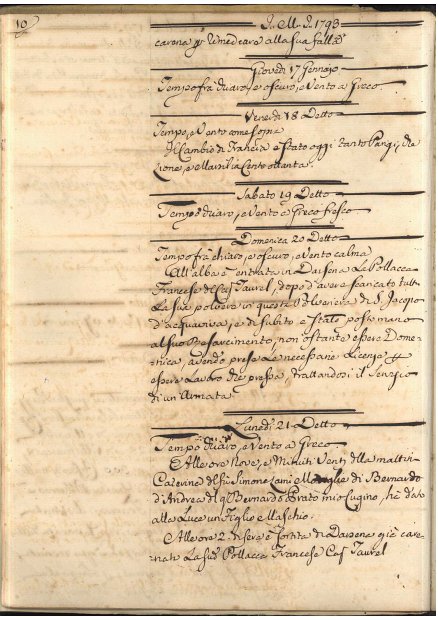 10
J. M. J. 1793
carena p rimediare alla sua falla
Giovedi 17 Gennajo
Tempo frà chiaro, e oscuro, e Vento a Greco.
Venerdi 18 Detto
Tempo, e Vento come sopra
Il Cambio di Francia è stato oggi tanto Parigi, che
Lione, e Marsilia Cento ottanta.
Sabato 19 Detto
Tempo chiaro, e Vento a Greco fresco
Domenica 20 Detto
Tempo frà chiaro, e oscuro, e Vento calma
All'alba è entrata in Darsena La Pollacca
Francese del Cap Taurel, dopo d'avere scaricato tutta
La sua polvere in questa di S. Jacopo
d'acquaviva, e di subito è stato posto mano
al suo Resarcimento, non ostante essere Dome-
nica, avendo prese Le necessarie Licenze p
essere Lavoro che pressa, trattandosi il Servizio
di un'Armata.
Lunedi 21 Detto
Tempo chiaro, e Vento a Greco
Alle ore Nove, e Minuti Venti della mattina
Caterina del fù Simone Moglie di Bernardo
d'Andrea del q Bernardo Prato mio Cugino, hà dato
alla Luce un Figlio Maschio.
Alle ore 2. di sera è sortita di Darsena già care-
nata La sud Pollacca Francese Cap Taurel